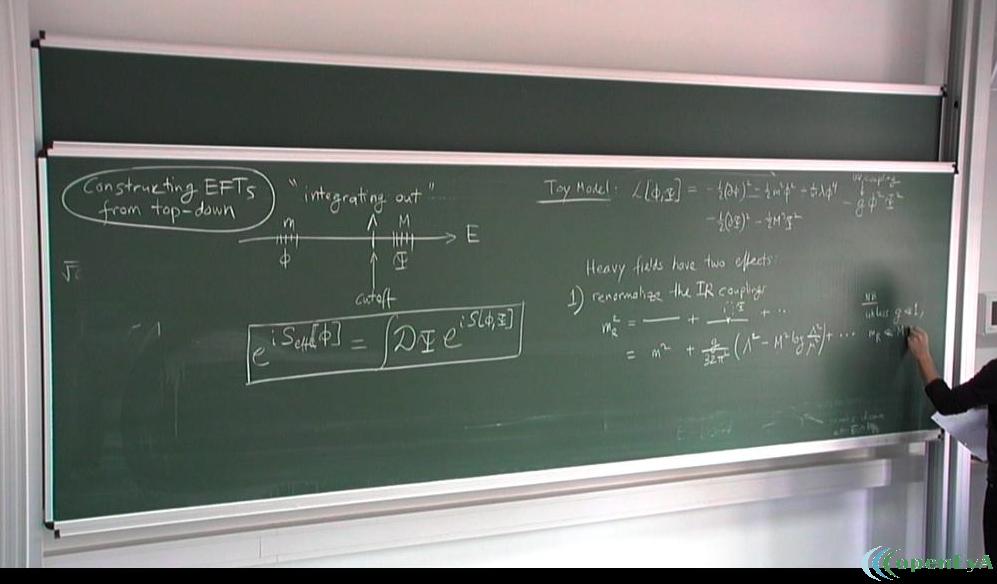 Constructing EFTs
from top-down
"integrating out"
m
M
E
ϕ
Φ
cutoff
e^{iS_eff[ϕ]} = ∫DΦ e^{iS[ϕ,Φ]}
Toy Model: L[ϕ,Φ] = -½(∂ϕ)² - ½m²ϕ² + λϕ⁴ - gϕ²Φ²
-½(∂Φ)² - ½M²Φ²
UV coupling
Heavy fields have two effects:
1) renormalize the IR couplings
m_R² = — + — + ..
Φ
= m² + g/32π² (Λ² - M² log Λ²/μ²) + ...
NB
unless g ≪ 1,
m_R